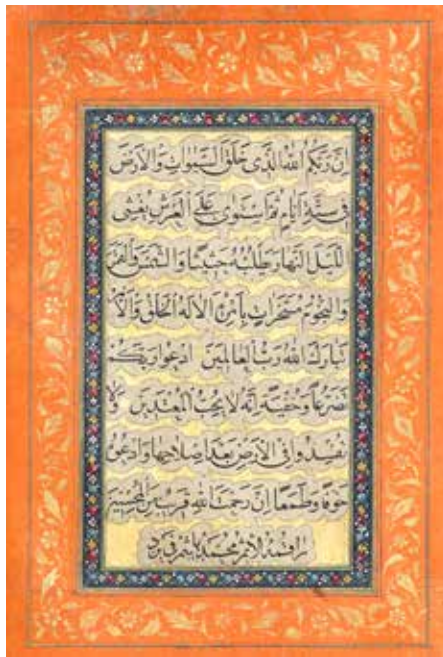 اِنَّ رَبَّكُمُ اللهُ الَّذی خَلَقَ السَّمٰوٰاتِ وَالْاَرْضَ
فی سِتَّةِ اَیّٰامٍ ثُمَّ اسْتَوٰی عَلَی الْعَرْشِ یُغْشِی
اللَّیْلَ النَّهٰارَ یَطْلُبُهُ حَثیثًا وَالشَّمْسَ وَالْقَمَرَ
وَالنُّجُومَ مُسَخَّرٰاتٍ بِاَمْرِهِ اَلٰا لَهُ الْخَلْقُ وَالْاَمْرُ
تَبٰارَكَ اللهُ رَبُّ الْعٰالَمینَ ادْعُوا رَبَّكُمْ
تَضَرُّعاً وَخُفْیَةً اِنَّهُ لٰا یُحِبُّ الْمُعْتَدینَ وَلٰا
تُفْسِدُوا فِی الْاَرْضِ بَعْدَ اِصْلٰاحِهٰا وَادْعُوهُ
خَوْفًا وَطَمَعًا اِنَّ رَحْمَتَ اللهِ قَریبٌ مِنَ الْمُحْسِنینَ
راقمه الاثم محمد هاشم